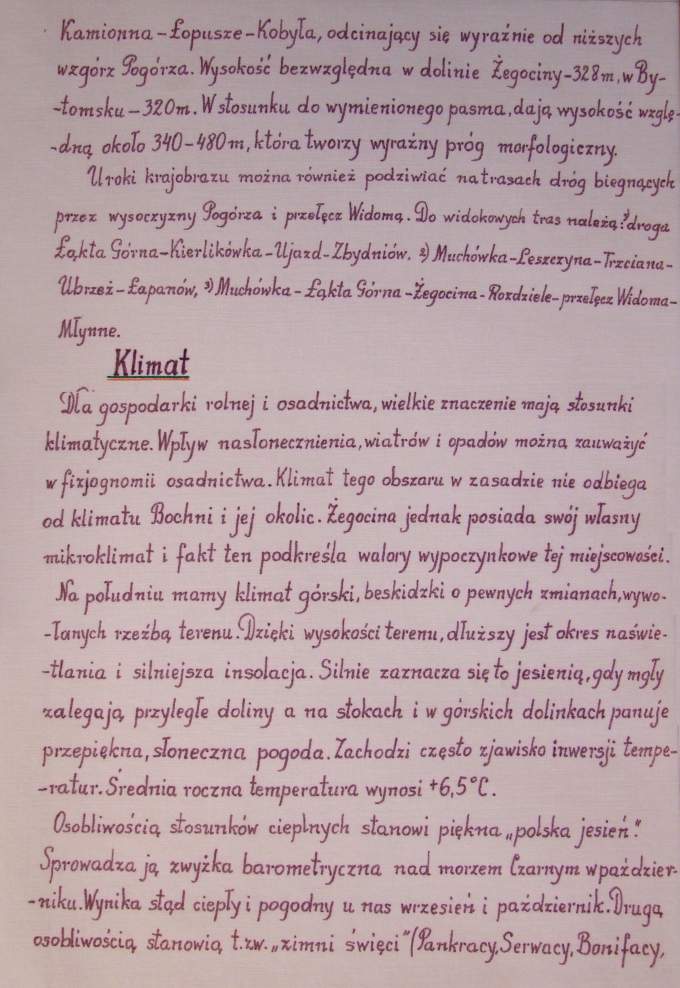 Kamionna-Łopusze-Kobyła, odcinający się wyraźnie od niższych
wzgórz Pogórza. Wysokość bezwzględna w dolinie Żegociny-328m, w By-
-tomsku-320m. W stosunku do wymienionego pasma, dają wysokość wzglę-
-dną około 340-480m, która tworzy wyraźny próg morfologiczny.
Uroki krajobrazu można również podziwiać na trasach dróg biegnących
przez wysoczyzny Pogórza i przełęcz Widomą. Do widokowych tras należą: 1) droga
Łąkta Górna-Kierlikówka-Ujazd-Zbydniów. 2) Muchówka-Leszczyna-Trzciana-
Ubrzeż-Łapanów, 3) Muchówka-Łąkta Górna-Żegocina-Rozdziele-przełęcz Widoma-
Młynne.
Klimat
Dla gospodarki rolnej i osadnictwa, wielkie znaczenie mają stosunki
klimatyczne. Wpływ nasłonecznienia, wiatrów i opadów można zauważyć
w fizjognomii osadnictwa. Klimat tego obszaru w zasadzie nie odbiega
od klimatu Bochni i jej okolic. Żegocina jednak posiada swój własny
mikroklimat i fakt ten podkreśla walory wypoczynkowe tej miejscowości.
Na południu mamy klimat górski, beskidzki o pewnych zmianach, wywo-
-łanych rzeźbą terenu. Dzięki wysokości terenu, dłuższy jest okres naświe-
-tlania i silniejsza insolacja. Silnie zaznacza się to jesienią, gdy mgły
zalegają przyległe doliny a na stokach i w górskich dolinkach panuje
przepiękna, słoneczna pogoda. Zachodzi często zjawisko inwersji tempe-
-ratur. Średnia roczna temperatura wynosi +6,5°C.
Osobliwością stosunków cieplnych stanowi piękna „polska jesień".
Sprowadza ją zwyżka barometryczna nad morzem Czarnym w paździer-
-niku. Wynika stąd ciepły i pogodny u nas wrzesień i październik. Drugą
osobliwością stanowią t.zw. „zimni święci" (Pankracy, Serwacy, Bonifacy,